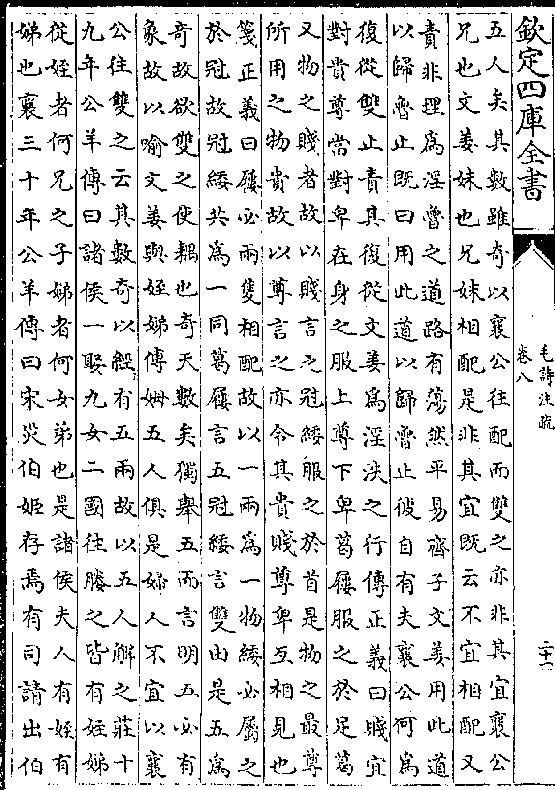 欽定四庫全書
毛詩注疏
卷八
二十一
五人矣其數雖奇以襄公往配而雙之亦非其宜襄公
兄也文姜妹也兄妹相配是非其宜既云不宜相配又
責非理為淫魯之道路有蕩然平易齊子文姜用此道
以歸魯止既曰用此道以歸魯止彼自有夫襄公何為
復從雙止責其復從文姜為淫泆之行傳正義曰賤宜
對貴尊當對卑在身之服上尊下卑葛屨服之於足葛
又物之賤者故以賤言之冠緌服之於首是物之最尊
所用之物貴故以尊言之亦令其貴賤尊卑互相見也
箋正義曰屨必兩隻相配故以一兩為一物緌必屬之
於冠故冠緌共為一同葛屨言五冠緌言雙由是五為
奇故欲雙之使耦也奇天數矣獨舉五而言明五必有
象故以喻文姜與姪娣傅姆五人俱是婦人不宜以襄
公往雙之云其數奇以經有五兩故以五人解之莊十
九年公羊傳曰諸侯一娶九女二國往媵之皆有姪娣
從姪者何兄之子娣者何女弟也是諸侯夫人有姪有
娣也襄三十年公羊傳曰宋災伯姬存焉有司請出伯